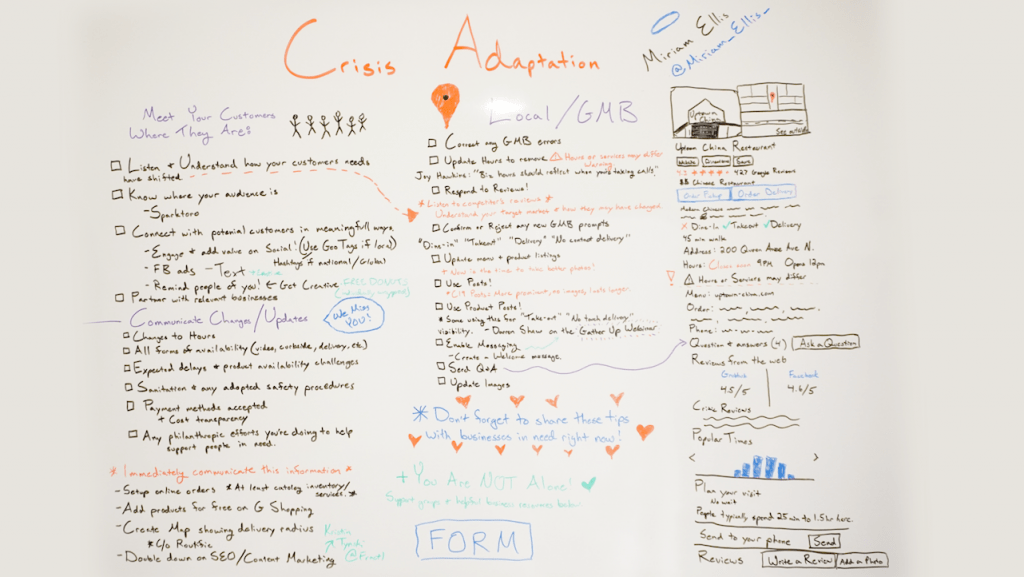 Crisis Adaptation
Miriam Ellis
@Miriam_Ellis_
Meet Your Customers
Where They Are:
Listen & Understand how your customers needs
have shifted
Know where your audience is
- Sparktoro
Connect with potential customers in meaningful ways.
- Engage & add value on Social! (Use Geo Tags if local)
Hashtags if national/Global
- FB ads - Text
- Remind people of you! ← Get Creative
FREE DONUTS
Partner with relevant businesses
We Miss
YOU!
Communicate Changes/Updates
Changes to Hours
All forms of availability (video, curbside, delivery, etc.)
Expected delays & product availability challenges
Sanitation & any adopted safety procedures
Payment methods accepted
+ Cost transparency
Any philanthropic efforts you're doing to help
support people in need.
* Immediately communicate this information *
- Setup online orders * At least catalog inventory/
services. *
- Add products for free on G Shopping
- Create Map showing delivery radius
* C/o Routific
- Double down on SEO/Content Marketing
Local/GMB
Correct any GMB errors
Update Hours to remove ⚠ Hours or services may differ
warning.
Joy Hawkins: "Biz hours should reflect when you're taking calls".
Respond to Reviews!
* Listen to competitor's reviews *
Understand your target market & how they may have changed.
Confirm or Reject any new GMB prompts
"Dine-in" "Takeout" "Delivery" "No contact delivery"
Update menu & product listings
+ Now is the time to take better photos!
Use Posts!
* C19 Posts: More prominent, no images, lasts longer.
Use Product Posts!
* Some using this for "Take-out" "No touch delivery"
visibility. - Darren Shaw on the Gather Up Webinar
Enable Messaging
- Create - Welcome message.
Seed Q&A
Update Images
* Don't forget to share these tips
with businesses in need right now!
+ You Are NOT Alone!
Support groups & helpful business resources below
FORM
Uptown
China
See outside
Uptown China Restaurant
Website Directions Save
427 Google Reviews
$$ Chinese Restaurant
Order Pickup Order Delivery
Modern Chinese
X Dine-In ✓ Takeout ✓ Delivery
45 min walk
Address: 200 Queen Anne Ave N.
Hours: Closes soon 9PM Opens 12pm
⚠ Hours or Services may differ
Menu: uptown-china.com
Order:
Phone:
Question & answers (4) Ask a Question
Reviews from the web
Facebook
4.5/5 4.6/5
Critic Reviews
Popular Times
< >
Plan your visit
No wait
People typically spend 25 min to 1.5 hr here.
Send to your phone Send
Reviews Write a Review Add a Photo